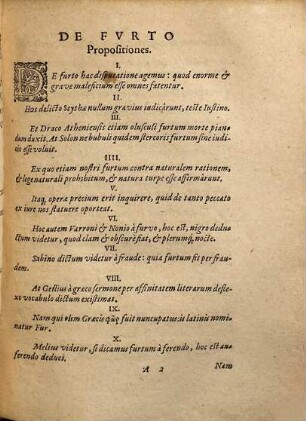 DE FVRTO
Propositiones.
I.
DE furto hac disputatione agemus: quod enorme &
grave maleficium esse omnes fatentur.
II
Hoc delicto Scythæ nullum gravius iudicârunt, teste Iustino.
III.
Et Draco Atheniensis etiam olusculi furtum morte pian
dum duxit. At Solon ne bubuli quidem stercoris furtum sine iudi
cio esse voluit.
IIII.
Ex quo etiam nostri furtum contra naturalem rationem,
& lege naturali prohibitum, & natura turpe esse affirmârunt.
V.
Itaq, operæ precium erit inquirere, quid de tanto peccato
ex iure nos statuere oporteat.
VI.
Hoc autem Varroni & Nonio à furvo, hoc est, nigro dedu
ctum videtur, quod clam & obscurè fiat, & plerumq, nocte.
VII.
Sabino dictum videtur à fraude: quia furtum fit per frau
dem.
VIII.
At Gellius à græco sermone per affinitatem literarum defle
xo vocabulo dictum existimat.
IX.
Nam qui olim Græcis φὼρ fuit nuncupatus: is latinis nomi
natur Fur.
X.
Melius videtur, si dicamus furtum à ferendo, hoc est au
ferendo deduci.
A 2 Nam